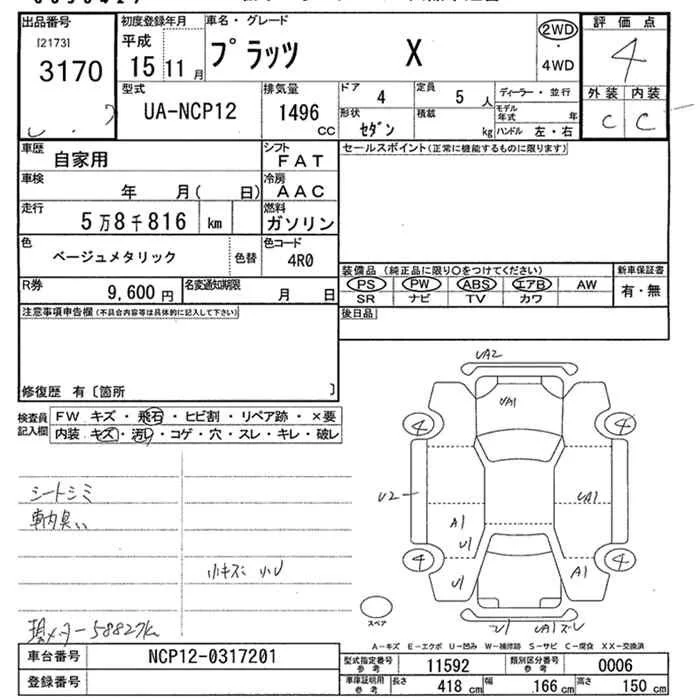 出品番号 初度登録年月 車名・グレード 評価点
[2173] 平成 プラッツ X 2WD 4
3170 15 11月 ・4WD 外装 内装
型式 排気量 ドア 4 定員 5 人 ディーラー・並行 C C
UA-NCP12 1496 CC 形状 セダン 積載 kg モデル年式 年
ハンドル 左・右
車歴 自家用 シフト FAT セールスポイント(正常に機能するものに限ります)
車検 年 月( 日) 冷房 AAC
走行 5万8千816 km 燃料 ガソリン
色 ベージュメタリック 色替 色コード 4R0
装備品(純正品に限り○をつけてください) 新車保証書
R券 9,600円 名変通知期限 月 日 PS PW ABS エアB AW 有・無
SR ナビ TV カワ
注意事項申告欄(不具合内容等は具体的に記入して下さい) 後日品
修復歴 有〔箇所 〕
検査員記入欄 FW キズ・飛石・ヒビ割・リペア跡・×要
内装 キズ・汚レ・コゲ・穴・スレ・キレ・破レ
シートシミ
車内臭い
小キズ 小U
現メーター58827km
UA2
UA1
4 4
U2 UA1
A1
U1
4 4
U1 A1
U1 UA1ズレ
スペア
A－キズ E－エクボ U－凹み W－補修跡 S－サビ C－腐食 XX－交換済
車台番号 NCP12-0317201 型式指定番号参考 11592 類別区分番号参考 0006
登録番号 車庫証明用参考 長さ 418 cm 幅 166 cm 高さ 150 cm